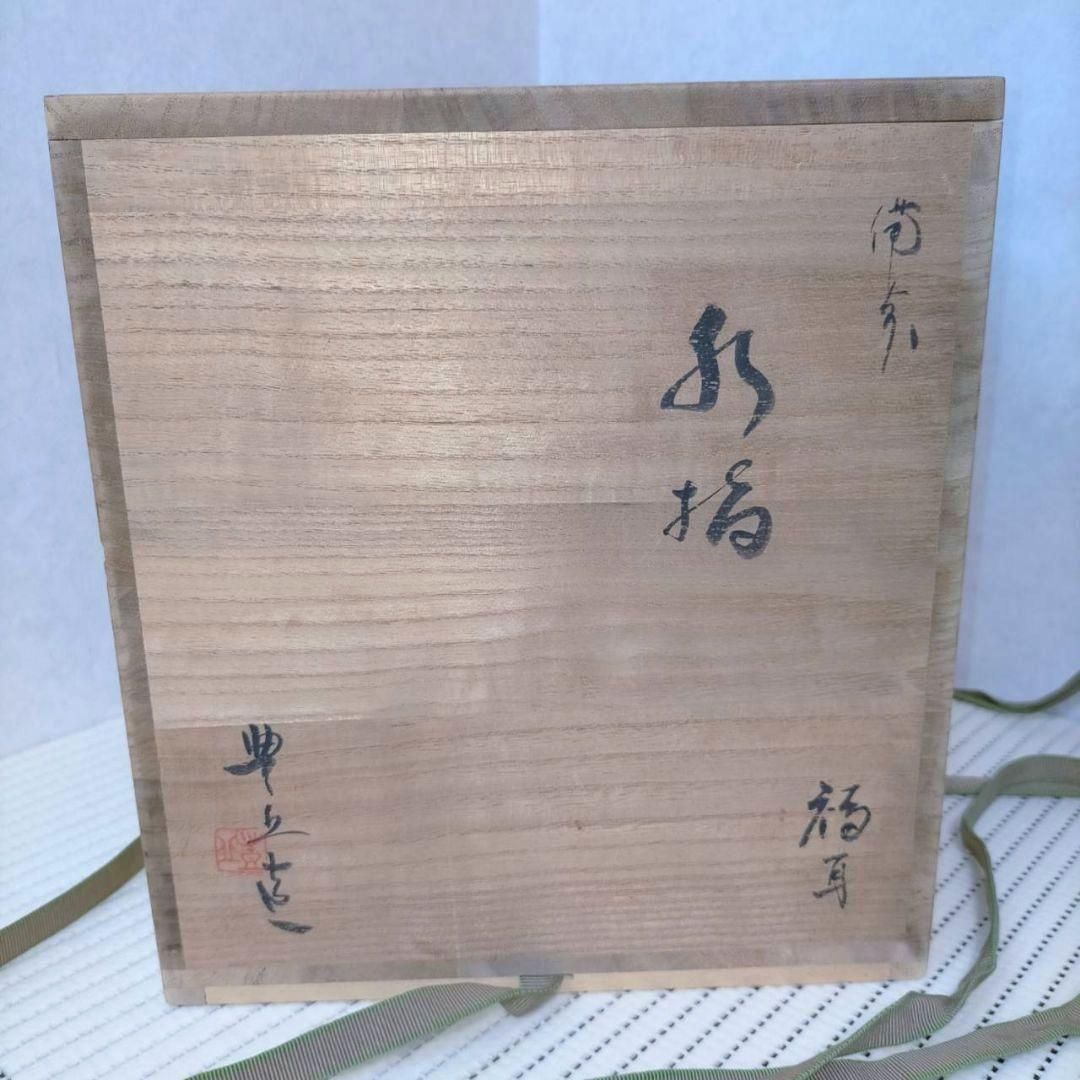 備前
水指
福耳
豊丘造